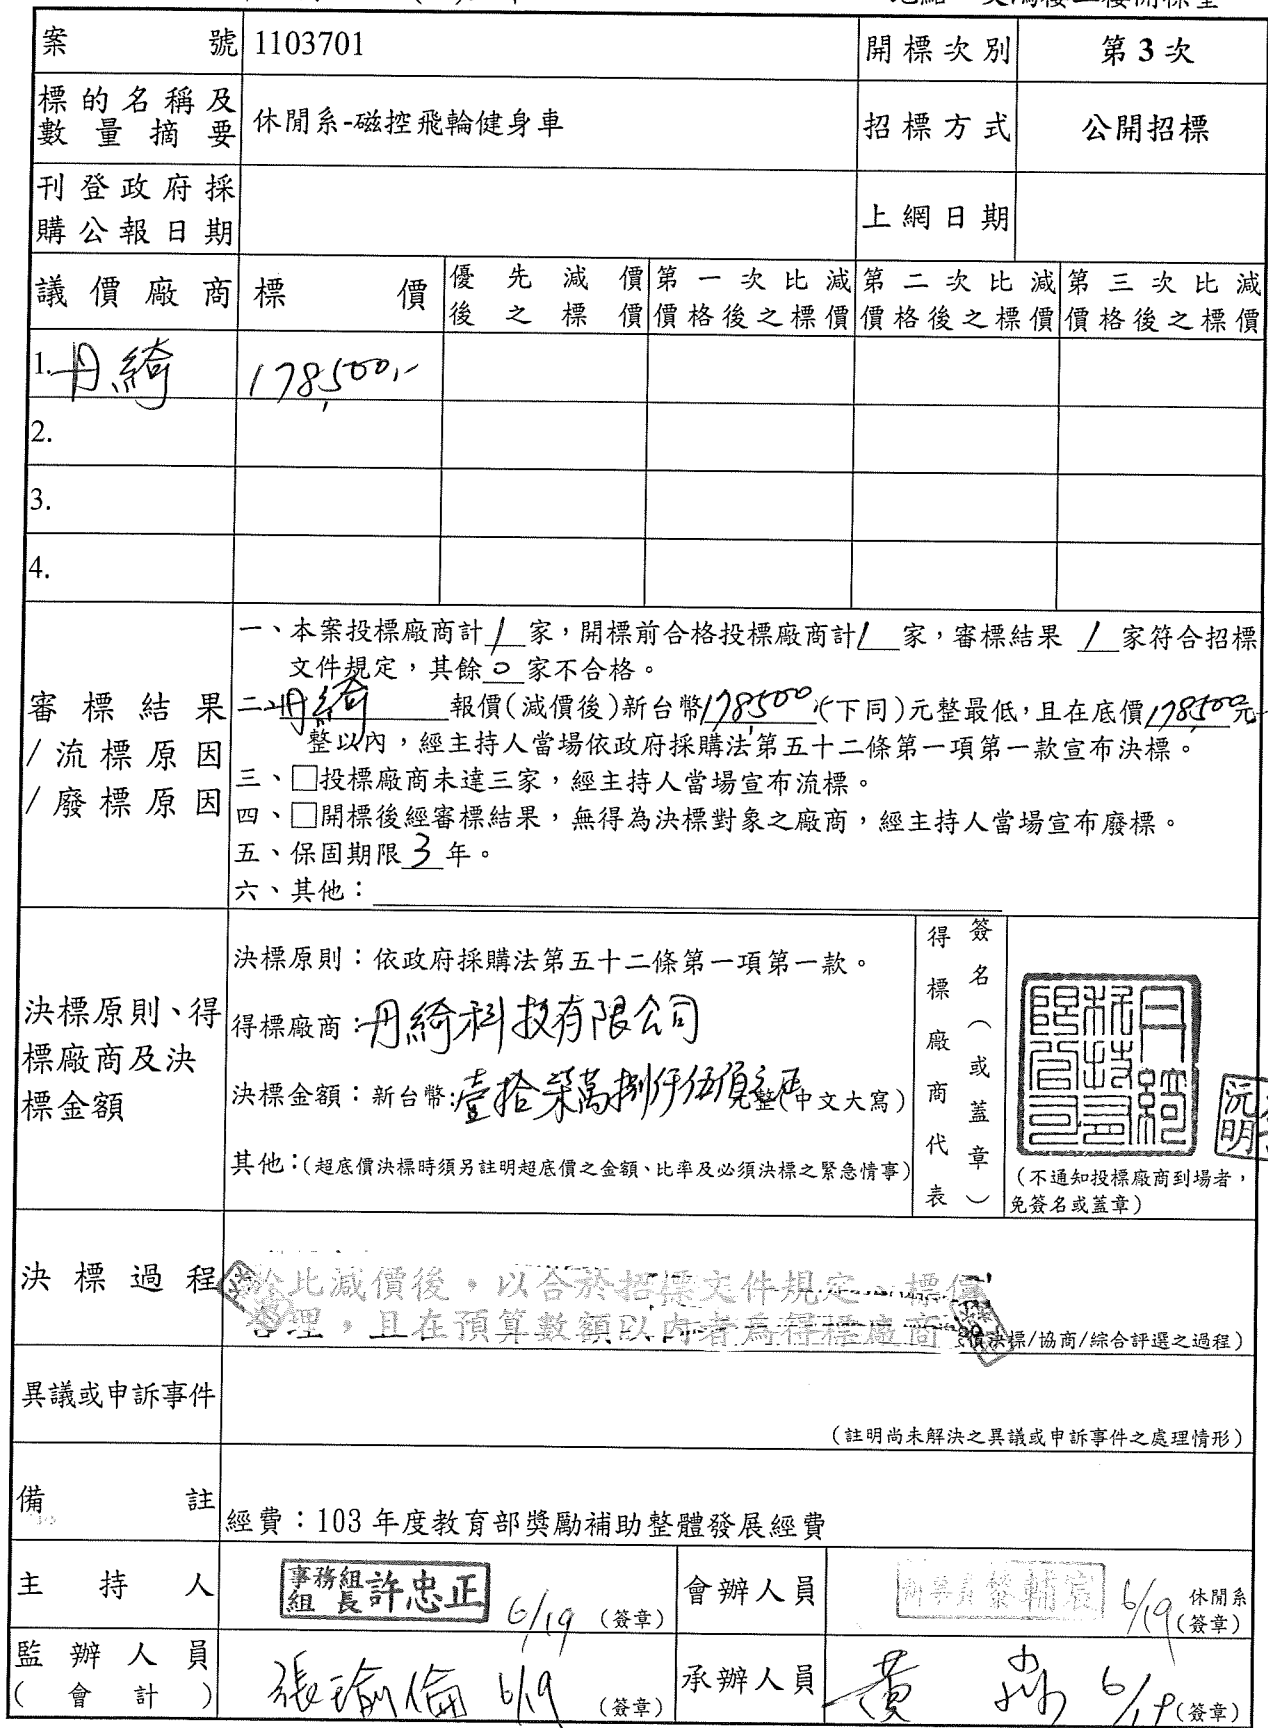 案號 1103701 開標次別 第3次
標的名稱及數量摘要 休閒系-磁控飛輪健身車 招標方式 公開招標
刊登政府採購公報日期 上網日期
議價廠商 標價 優先減價後之標價 第一次比減價格後之標價 第二次比減價格後之標價 第三次比減價格後之標價
1.丹綺 178,500,-
2.
3.
4.
審標結果/流標原因/廢標原因
一、本案投標廠商計1家，開標前合格投標廠商計1家，審標結果 1家符合招標
文件規定，其餘0家不合格。
二、丹綺 報價(減價後)新台幣178,500(下同)元整最低，且在底價178,500元
整以內，經主持人當場依政府採購法第五十二條第一項第一款宣布決標。
三、□投標廠商未達三家，經主持人當場宣布流標。
四、□開標後經審標結果，無得為決標對象之廠商，經主持人當場宣布廢標。
五、保固期限3年。
六、其他：
決標原則、得標廠商及決標金額
決標原則：依政府採購法第五十二條第一項第一款。
得標廠商：丹綺科技有限公司
決標金額：新台幣:壹拾柒萬捌仟伍佰元正元整(中文大寫)
其他：(超底價決標時須另註明超底價之金額、比率及必須決標之緊急情事)
得標廠商代表
簽名（或蓋章）
丹綺科技有限公司
沅明
(不通知投標廠商到場者，
免簽名或蓋章)
決標過程
於比減價後，以合於招標文件規定、標價
合理，且在預算數額以內者為得標廠商
價決標/協商/綜合評選之過程)
異議或申訴事件
(註明尚未解決之異議或申訴事件之處理情形)
備註
經費：103 年度教育部獎勵補助整體發展經費
主持人 事務組組長 許忠正 6/19 (簽章) 會辦人員 黎輔宸 6/19 休閒系(簽章)
監辦人員(會計) 張瑜倫 6/19 (簽章) 承辦人員 黃 6/19 (簽章)